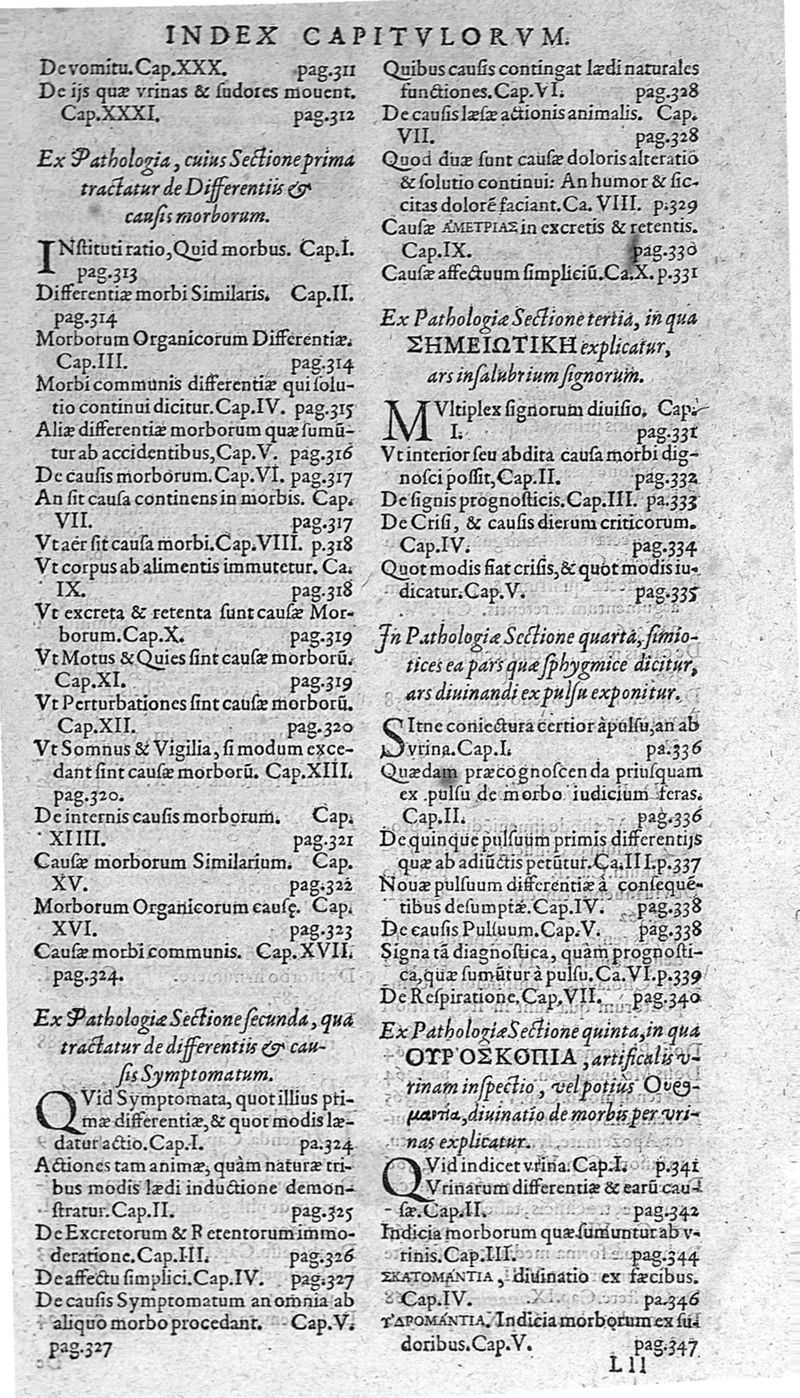 INDEX CAPITVLORVM.
De vomitu. Cap. XXX. pag. 311
De ijs quæ vrinas & ſudores mouent.
Cap. XXXI. pag. 312
Ex Pathologia, cuius Sectione prima
tractatur de Differentiis &
cauſis morborum.
INſtituti ratio, Quid morbus. Cap. I.
pag. 313
Differentiæ morbi Similaris. Cap. II.
pag. 314
Morborum Organicorum Differentiæ.
Cap. III. pag. 314
Morbi communis differentiæ qui ſolu-
tio continui dicitur. Cap. IV. pag. 315
Aliæ differentiæ morborum quæ ſumū-
tur ab accidentibus, Cap. V. pag. 316
De cauſis morborum. Cap. VI. pag. 317
An ſit cauſa continens in morbis. Cap.
VII. pag. 317
Vt aër ſit cauſa morbi. Cap. VIII. p. 318
Vt corpus ab alimentis immutetur. Ca.
IX. pag. 318
Vt excreta & retenta ſunt cauſæ Mor-
borum. Cap. X. pag. 319
Vt Motus & Quies ſint cauſæ morborū.
Cap. XI. pag. 319
Vt Perturbationes ſint cauſæ morborū.
Cap. XII. pag. 320
Vt Somnus & Vigilia, ſi modum exce-
dant ſint cauſæ morborū. Cap. XIII.
pag. 320.
De internis cauſis morborum. Cap.
XIIII. pag. 321
Cauſæ morborum Similarium. Cap.
XV. pag. 322
Morborum Organicorum cauſę. Cap.
XVI. pag. 323
Cauſæ morbi communis. Cap. XVII.
pag. 324.
Ex Pathologiæ Sectione ſecunda, qua
tractatur de differentiis & cau-
ſis Symptomatum.
QVid Symptomata, quot illius pri-
mæ differentiæ, & quot modis læ-
datur actio. Cap. I. pa. 324
Actiones tam animæ, quàm naturæ tri-
bus modis lædi inductione demon-
ſtratur. Cap. II. pag. 325
De Excretorum & Retentorum immo-
deratione. Cap. III. pag. 326
De affectu ſimplici. Cap. IV. pag. 327
De cauſis Symptomatum an omnia ab
aliquo morbo procedant. Cap. V.
pag. 327
Quibus cauſis contingat lædi naturales
functiones. Cap. VI. pag. 328
De cauſis læſæ actionis animalis. Cap.
VII. pag. 328
Quod duæ ſunt cauſæ doloris alteratio
& ſolutio continui: An humor & ſic-
citas dolorē faciant. Ca. VIII. p. 329
Cauſæ ἈΜΕΤΡΙΑΣ in excretis & retentis.
Cap. IX. pag. 330
Cauſæ affectuum ſimpliciū. Ca. X. p. 331
Ex Pathologiæ Sectione tertia, in qua
ΣΗΜΕΙΩΤΙΚΗ explicatur,
ars inſalubrium ſignorum.
MVltiplex ſignorum diuiſio. Cap.
I. pag. 331
Vt interior ſeu abdita cauſa morbi dig-
noſci poſſit, Cap. II. pag. 332
De ſignis prognoſticis. Cap. III. pa. 333
De Criſi, & cauſis dierum criticorum.
Cap. IV. pag. 334
Quot modis fiat criſis, & quot modis iu-
dicatur. Cap. V. pag. 335
In Pathologiæ Sectione quarta, ſimio-
tices ea pars quæ ſphygmice dicitur,
ars diuinandi ex pulſu exponitur.
SItne coniectura certior à pulſu, an ab
vrina. Cap. I. pa. 336
Quædam præcognoſcenda priuſquam
ex pulſu de morbo iudicium feras.
Cap. II. pag. 336
De quinque pulſuum primis differentijs
quæ ab adiūctis petūtur. Ca. III. p. 337
Nouæ pulſuum differentiæ à conſequē-
tibus deſumptæ. Cap. IV. pag. 338
De cauſis Pulſuum. Cap. V. pag. 338
Signa tā diagnoſtica, quàm prognoſti-
ca, quæ ſumūtur à pulſu. Ca. VI. p. 339
De Reſpiratione. Cap. VII. pag. 340
Ex Pathologiæ Sectione quinta, in qua
ΟΥΡΟΣΚΟΠΙΑ, artificalis v-
rinam inſpectio, vel potiùs Οὐρο-
μαντία, diuinatio de morbis per vri-
nas explicatur.
QVid indicet vrina. Cap. I. p. 341
Vrinarum differentiæ & earū cau-
ſæ. Cap. II. pag. 342
Indicia morborum quæ ſumuntur ab v-
rinis. Cap. III. pag. 344
ΣΚΑΤΟΜΆΝΤΙΑ, diuinatio ex fæcibus.
Cap. IV. pa. 346
ὙΔΡΟΜΆΝΤΙΑ. Indicia morborum ex ſu-
doribus. Cap. V. pag. 347
Lll